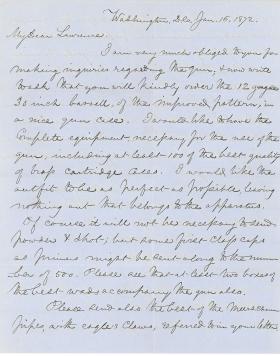 Washington, D.C. Jan. 15, 1872.
My Dear Lawrence
I am very much obliged to you for
making inquiries regarding the gun, & now write
to ask that you will kindly order the 12 gauge
30 inch barrell, of the improved pattern, in
a nice gun case. I would like to have the
complete equipment, necessary for the use of the
gun, including at least 100 of the best quality
of brass cartridge cases. I would like the
outfit to be as perfect as possible, leaving
nothing out that belongs to the apparatus.
Of course it will not be necessary to send
powder & shot; but some first class caps
as primers might be sent along to the num-
ber of 500. Please see that at least two boxes of
the best wads accompany the gun also.
Please send also the best of the Meerschaum
pipes, with eagle's claws, referred to in your letter